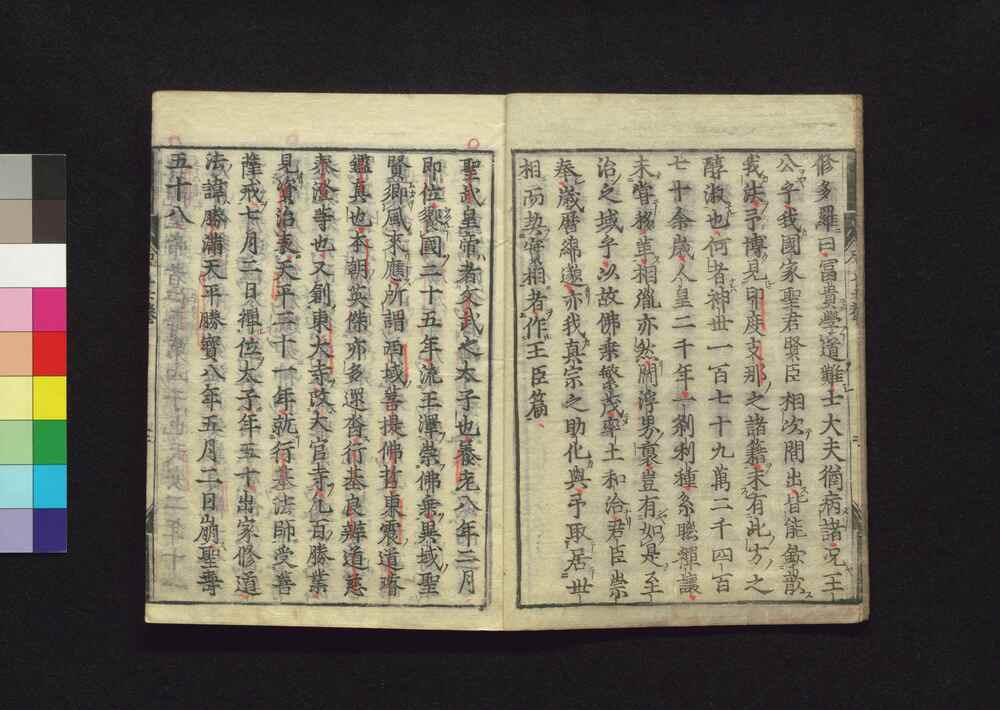 修多羅曰富貴學道難士大夫猶病諸況王
公乎我國家聖君賢臣相次間出皆能欽歆
我法予博見印度支那之諸籍未有此方之
醇淑也何者神世一百七十九萬二千四百
七十余歲人皇二千年一刹利種系聯禪讓
未嘗移革相胤亦然閻浮界裏豈有如是至
治之域乎以故佛乘繁茂率土和洽君臣崇
奉歲曆綿邈亦我真宗之助化與予取居世
相而契實相者作王臣篇
聖武皇帝者文武之太子也養老八年二月
即位饗國二十五年流王澤崇佛乘異域聖
賢郷風來應所謂西域菩提佛哲東震道璿
鑑真也本朝英傑亦多還沓行基良辨道慈
泰澄等也又創東大寺改大官寺凡百勝業
見資治表天平二十一年就行基法師受善
薩戒七月二日禪位太子年五十出家修道
法諱勝滿天平勝寶八年五月二日崩聖壽
五十八